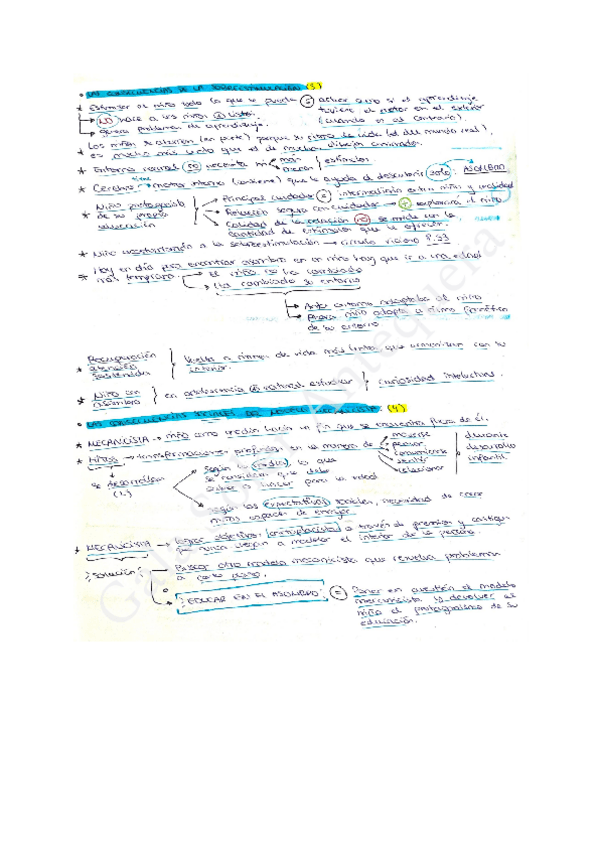 • LAS CONSECUENCIAS DE LA SOBREESTIMULACIÓN (3)
* Estimular al niño todo lo que se pueda = actuar como si el aprendizaje
tuviere el motor en el exterior
(cuando es al contrario).
→ NO hace a los niños + listos.
→ genera problemas de aprendizaje.
* Los niños se aburren (en parte) porque su ritmo de vida (el del mundo real),
es mucho más lento que el de muchos dibujos animados.
* Entorno normal → no necesita ni más / menos estímulos.
* Cerebro tiene → motor interno (
) que le ayuda a descubrir solo → ASOMBRO
* Niño protagonista de su propia educación
→ Principal cuidador = intermediario entre niño y realidad
→ Relación segura con cuidador → + explorará el niño
→ Calidad de la relación no se mide con la
cantidad de estímulos que le ofrecen.
* Niño
a la sobreestimulación → círculo vicioso P.33
* Hoy en día para encontrar asombro en un niño hay que ir a una edad
más temprana.
→ el niño no ha cambiado
→ Ha cambiado su entorno
→ Ante entorno
al niño
→
niño adapta a ritmo frenético
de su entorno
* Recuperación atención sostenida } Vuelta a ritmos de vida más lentos que armonicen con su
interior.
* Niño con asombro } en
natural estudiar } curiosidad intelectual.
• LAS CONSECUENCIAS SOCIALES DEL MODELO MECANICISTA (4)
* MECANICISTA → niño como medio hacia un fin que se encuentra fuera de él.
* Niños → transformaciones profundas en la manera de
→ moverse
→ pensar
→ comunicarse
→ sentir
→ relacionar
durante
desarrollo
infantil
se desarrollan
→ Según los medios, lo que
se considera que debe
para la edad
→ según las expectativas sociales, necesidad de crear
niños capaces de encajar
* MECANICISTA → lograr objetivos (
) a través de premios y castigos
y nunca llegan a modelar el interior de la persona.
¿Solución?
→ Buscar otro modelo mecanicista que resuelva problemas
a corto plazo.
→ ¡EDUCAR EN EL ASOMBRO! = Poner en cuestión el modelo
mecanicista y devolver al
niño el protagonismo de su
educación.